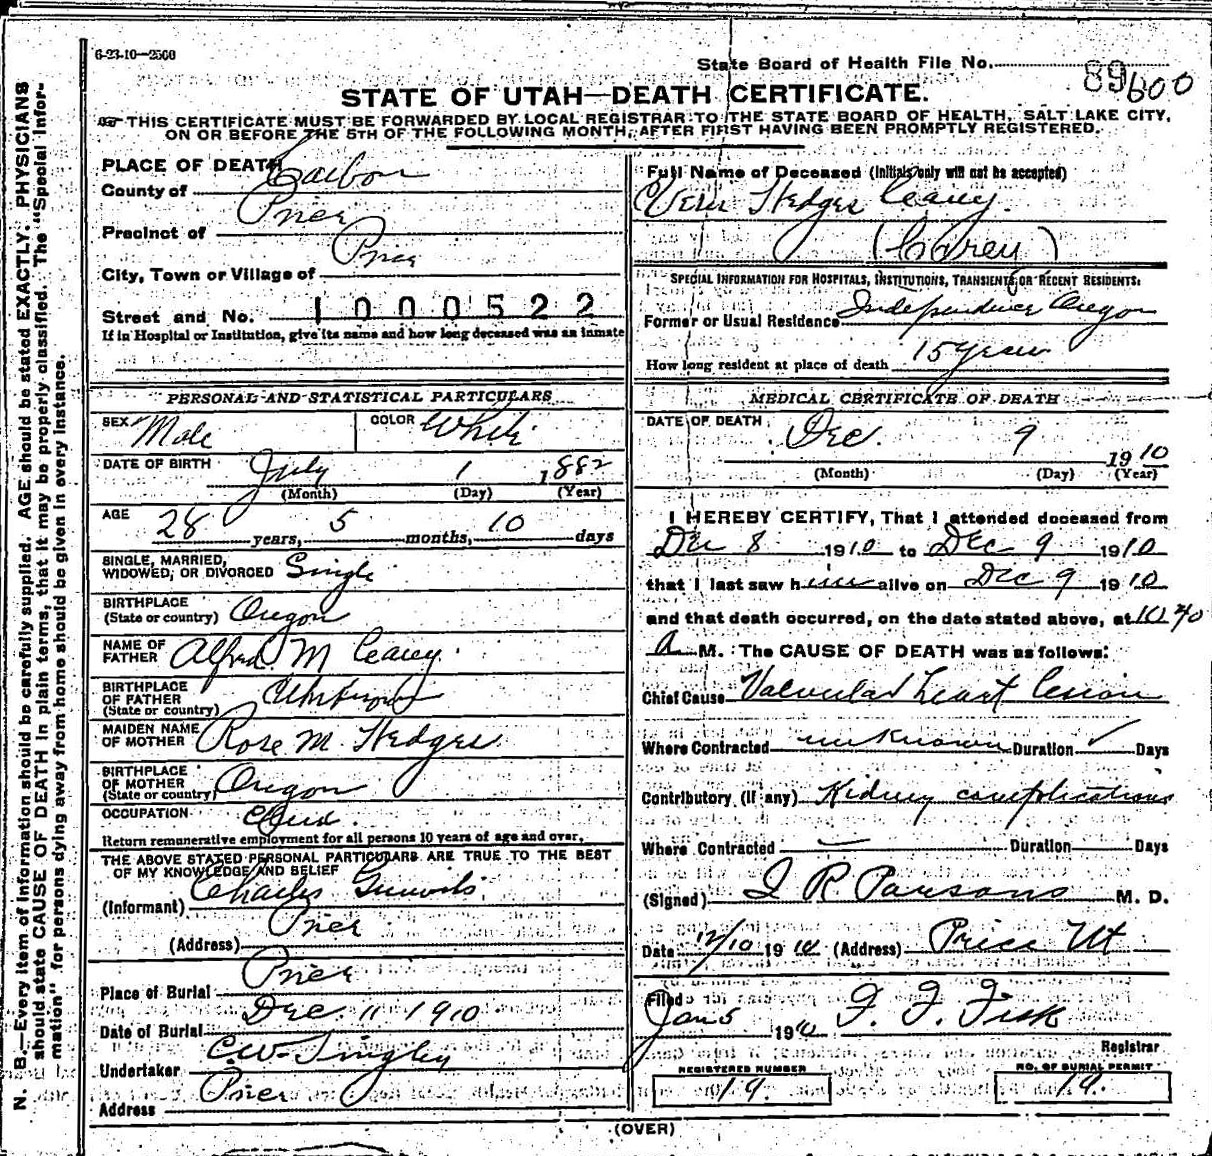 6-23-10—2500
State Board of Health File No. 89 600
STATE OF UTAH—DEATH CERTIFICATE.
THIS CERTIFICATE MUST BE FORWARDED BY LOCAL REGISTRAR TO THE STATE BOARD OF HEALTH, SALT LAKE CITY,
ON OR BEFORE THE 5TH OF THE FOLLOWING MONTH, AFTER FIRST HAVING BEEN PROMPTLY REGISTERED.
N. B.—Every item of information should be carefully supplied. AGE should be stated EXACTLY. PHYSICIANS
should state CAUSE OF DEATH in plain terms, that it may be properly classified. The "Special Infor-
mation" for persons dying away from home should be given in every instance.
PLACE OF DEATH
County of Carbon
Precinct of Price
City, Town or Village of Price
Street and No. 1000522
If in Hospital or Institution, give its name and how long deceased was an inmate
PERSONAL AND STATISTICAL PARTICULARS
SEX Male COLOR White
DATE OF BIRTH July 1 1882
(Month) (Day) (Year)
AGE 28 years, 5 months, 10 days
SINGLE, MARRIED,
WIDOWED, OR DIVORCED Single
BIRTHPLACE
(State or country) Oregon
NAME OF
FATHER Alfred M Ceavey
BIRTHPLACE
OF FATHER
(State or country)
MAIDEN NAME
OF MOTHER Rose M. Hedges
BIRTHPLACE
OF MOTHER
(State or country) Oregon
OCCUPATION
Return remunerative employment for all persons 10 years of age and over.
THE ABOVE STATED PERSONAL PARTICULARS ARE TRUE TO THE BEST
OF MY KNOWLEDGE AND BELIEF
(Informant) Charles
(Address) Price
Place of Burial Price
Date of Burial Dec. 11 1910
Undertaker C.W. Singley
Address Price
Full Name of Deceased (Initials only will not be accepted)
Vern Hedges Ceavey.
(Carey)
SPECIAL INFORMATION FOR HOSPITALS, INSTITUTIONS, TRANSIENTS OR RECENT RESIDENTS:
Former or Usual Residence Independence Oregon
How long resident at place of death 15 years
MEDICAL CERTIFICATE OF DEATH
DATE OF DEATH Dec. 9 1910
(Month) (Day) (Year)
I HEREBY CERTIFY, That I attended deceased from
Dec 8 1910 to Dec 9 1910
that I last saw him alive on Dec 9 1910
and that death occurred, on the date stated above, at 10.40
A M. The CAUSE OF DEATH was as follows:
Chief Cause Valvular heart lesion
Where Contracted unknown Duration ✓ Days
Contributory (if any) Kidney complications
Where Contracted Duration Days
(Signed) I R Parsons M. D.
Date 12/10 1910 (Address) Price Ut
Filed
Jan 5 1910 F. F. Fisk
Registrar
REGISTERED NUMBER
19.
NO. OF BURIAL PERMIT
19.
(OVER)